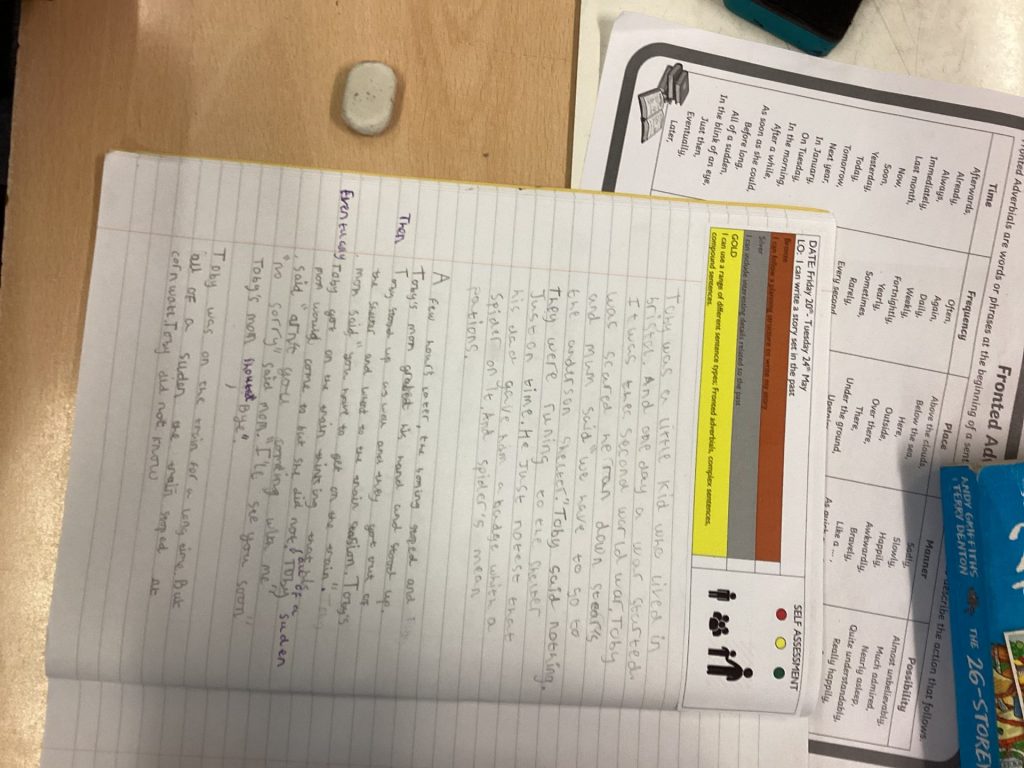 DATE: Friday 20th - Tuesday 24th May
LO: I can write a story set in the past
Bronze
I can follow a planning structure to write my story
Silver
I can include interesting details related to the past
GOLD
I can use a range of different sentence types: Fronted adverbials, complex sentences,
compound sentences.
SELF ASSESSMENT
Toby was a little kid who lived in
bristol. And one day a war started.
It was the second world war. Toby
was scared he ran down
and mum said "we have to go to
the anderson
They were runing to the
Just on time. He Just notest that
his dad gave him a badge with a
spider on it and spider's mean
A few hours later, the boming stoped and
Toby's mom grabed his hand and stood up,
Then
Toby stood up as well and they got out of
the and went to the train
mom said "you have to get on the train."
Eventually Toby got on the train thinking that
mom would come to but she did not
said "arnt you coming with me"
"no sorry" said mom. "I'll see you soon"
Toby's mom Bye."
Toby was on the train for a long time. But
all of a suden the train stoped at
cornwall. Toby did not know
Fronted Adverbials are words or phrases at the beginning of a
describe the action that follows.
Time
Afterwards,
Already,
Always,
Immediately,
Last month,
Now,
Soon,
Yesterday,
Today,
Tomorrow,
Next year,
In January,
On Tuesday,
In the morning,
After a while,
As soon as she could,
Before long,
All of a sudden,
In the blink of an eye,
Just then,
Eventually,
Later,
Frequency
Often,
Again,
Daily,
Weekly,
Fortnightly,
Yearly,
Sometimes,
Rarely,
Every second
Place
Above the clouds,
Below the sea,
Here,
Outside,
Over there,
There,
Under the ground,
Manner
Sadly,
Slowly,
Happily,
Awkwardly,
Bravely,
Like a ... ,
Possibility
Almost unbelievably,
Much admired,
Nearly asleep,
Quite understandably,
Really happily,
ANDY GRIFFITHS
& TERRY DENTON
THE 26-STOREY